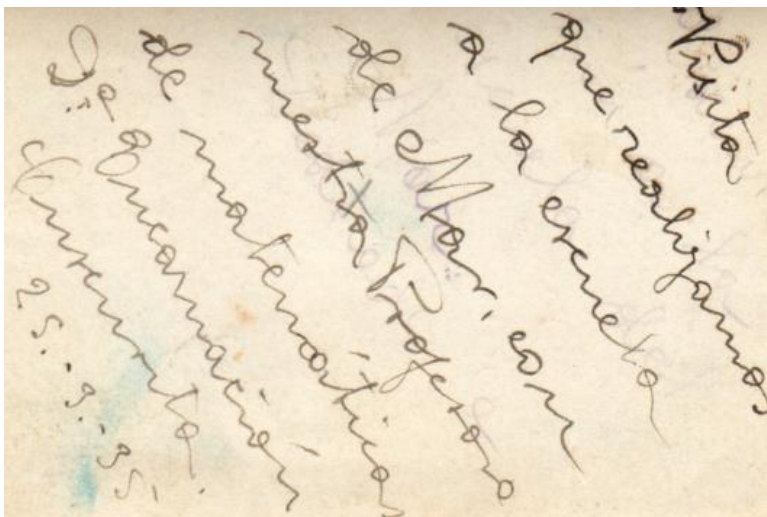 Visita
que realizamos
a la escuela
de Mar, con
nuestra Profesora
de matemáticas
Dª Encarnación
25.-3.-35.-